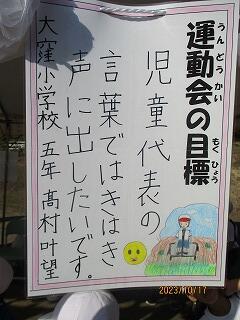 運動会の目標
うんどうかい
もくひょう
児童代表の
言葉ではきはき
声に出したいです。
大窪小学校 五年 髙村叶望
2023/10/17